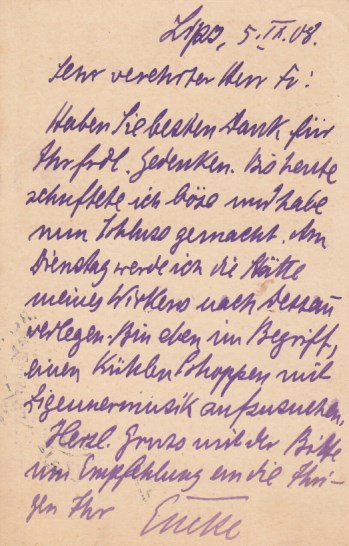 Lpzg, 5. IX. 08.
Sehr verehrter Herr Fr:
Haben Sie besten Dank für
Ihr frdl. Gedenken. Bis heute
schuftete ich böse und habe
nun Schluss gemacht. Am
Dienstag werde ich die Stätte
meines Wirkens nach Dessau
verlegen. Bin eben im Begriff,
einen kühlen Schoppen mit
Zigeunermusik aufzusuchen.
Herzl. Gruss mit der Bitte
um Empfehlung an die Ihri-
gen Ihr